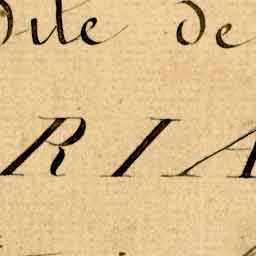 dite de
RIA